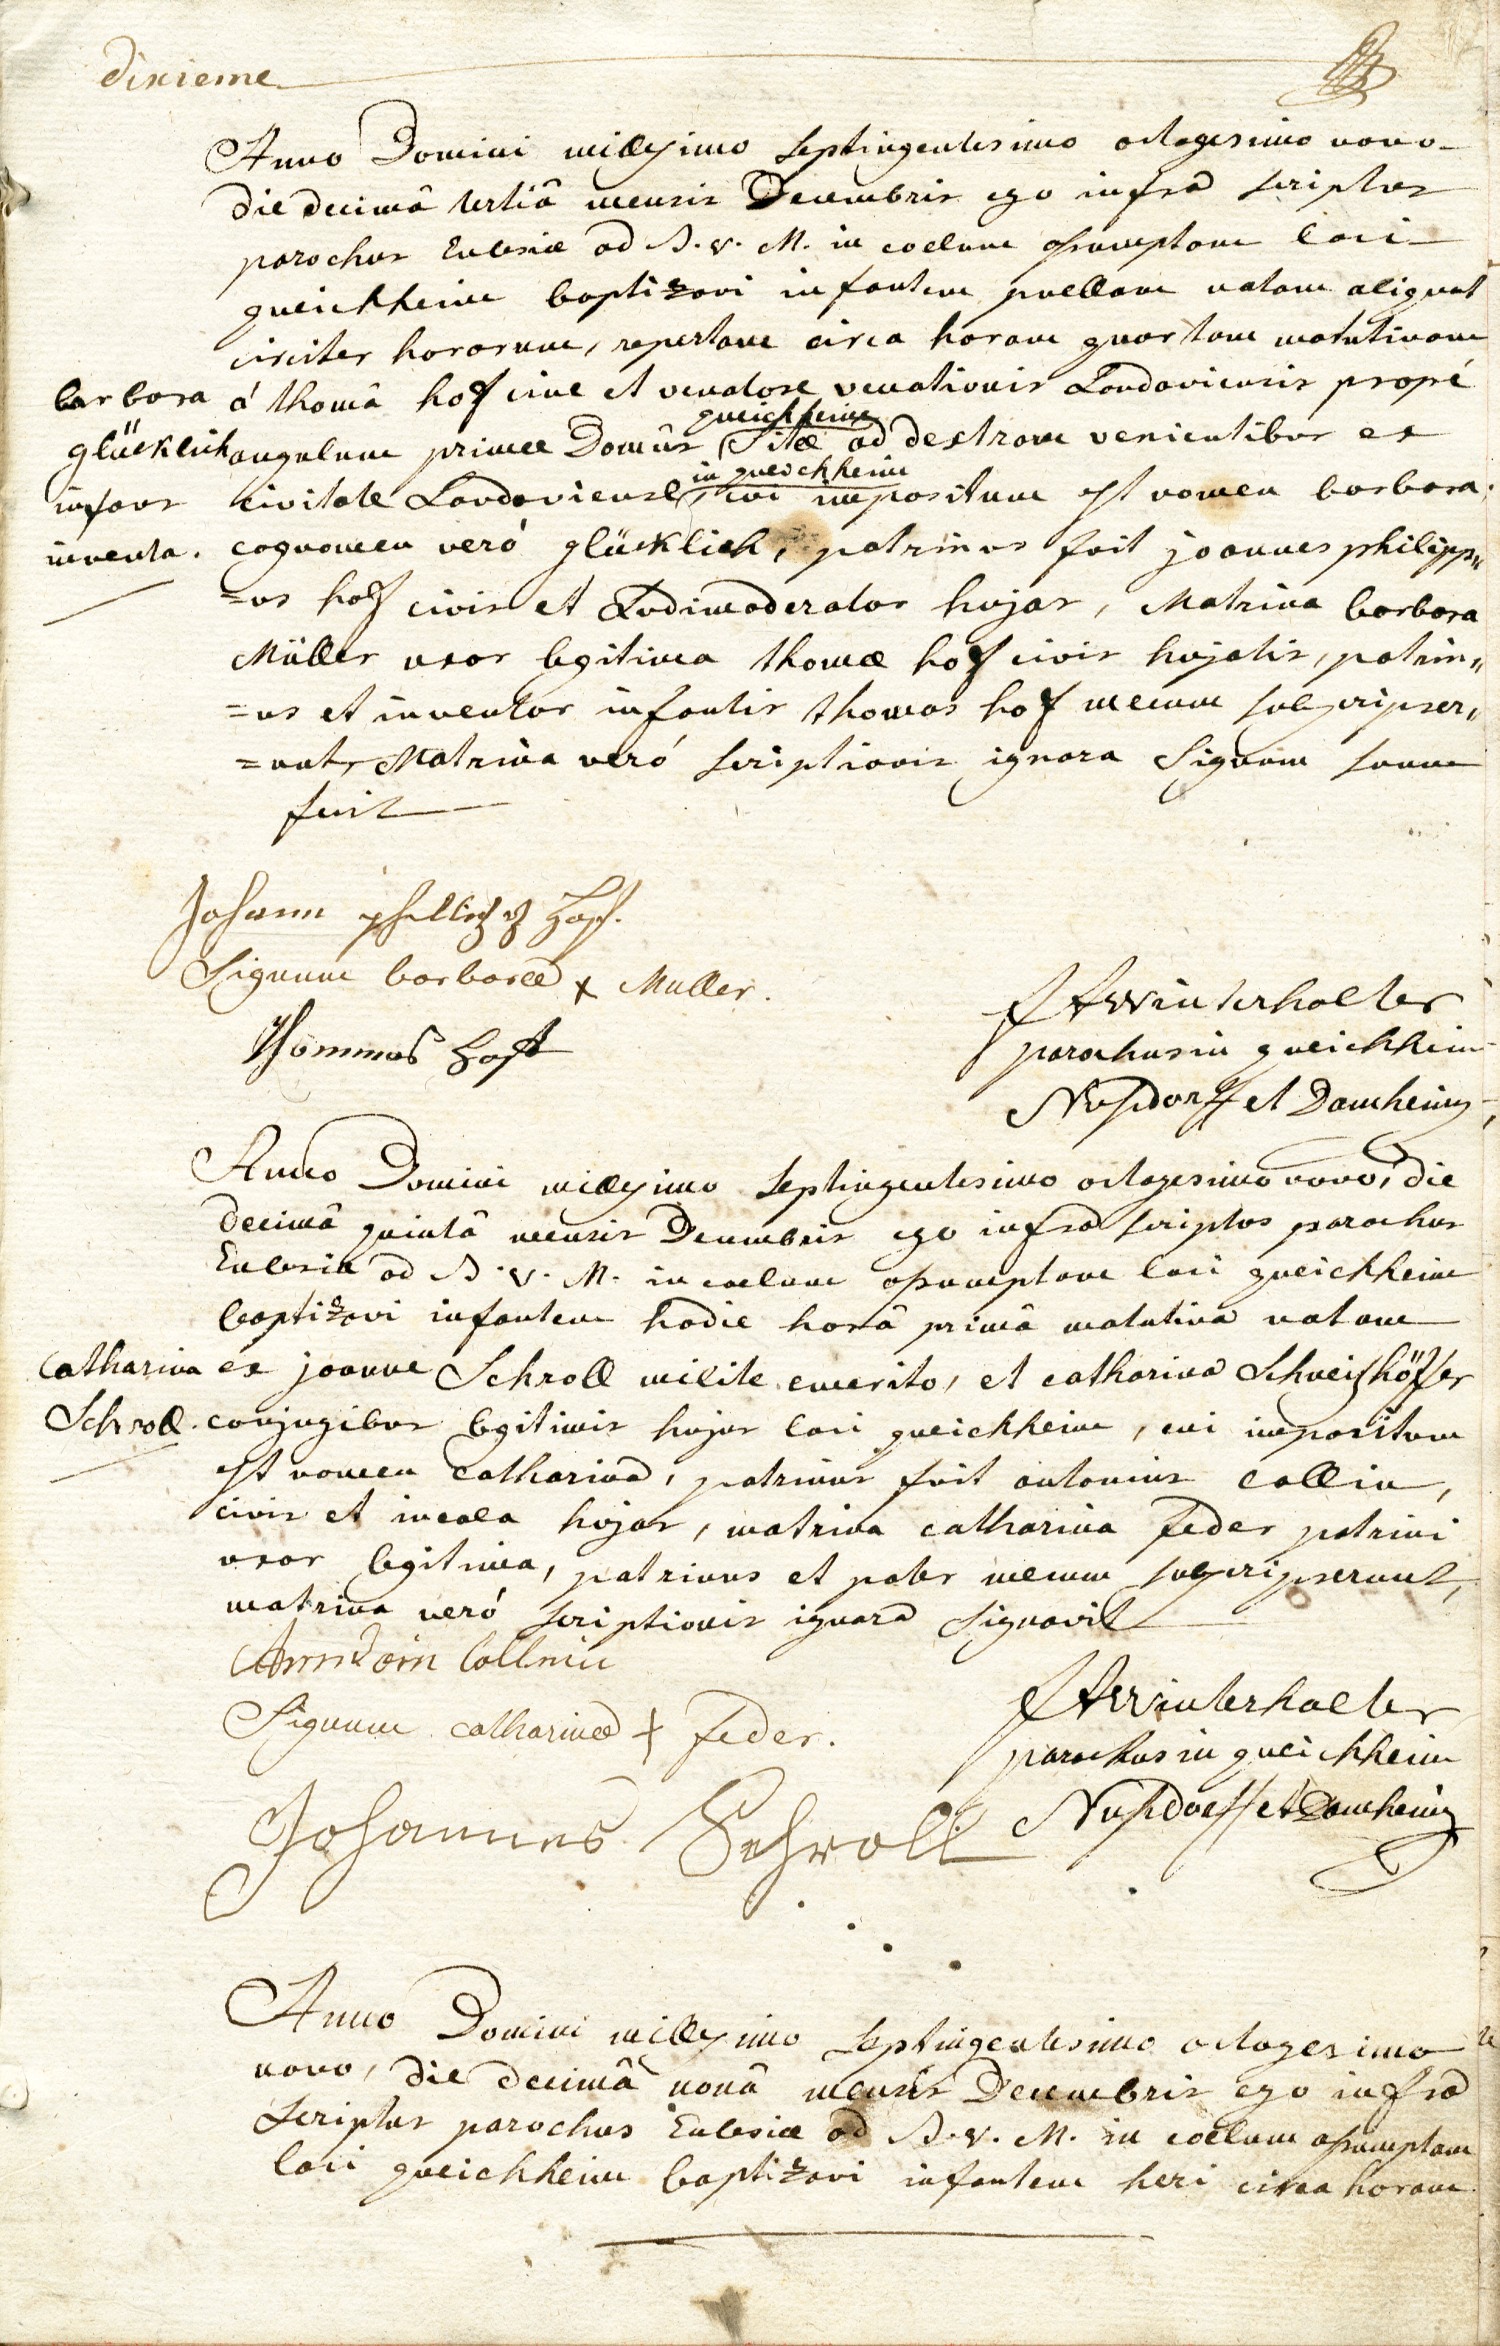 dixieme
Anno Domini millesimo septingentesimo octogesimo nono
die decimâ tertiâ mensis Decembris ego infra scriptus
parochus Ecclesiæ ad B. V. M. in coelum assumptam loci
queichheim baptizavi infantem puellam natam aliquot
circiter horarum, repertam circa horam quartam matutinam
barbara á thomâ hoff cive et venatore venationis Landaviensis propé
glücklich angulum primæ Domûs queichheim sitæ ad dextram venientibus ex
infans civitate Landaviense, in queichheim cui impositum est nomen barbara,
inventa. cognomen veró glücklich, patrinus fuit joannes philipp„
=us hoff civis et Ludimoderator hujas, Matrina barbara
Müller uxor legitima thomæ hoff civis hujatis, patrin„
=us et inventor infantis thomas hoff mecum subscripser„
=unt, Matrina veró scriptionis ignara Signum suum
fecit
Johann
Signum barbaræ + Muller.
Thommas Hoff
FA Winterhalter
parochus in queichheim
Nusdorff et Damheim
Anno Domini millesimo septingentesimo octogesimo nono, die
decimâ quintâ mensis Decembris ego infra scriptus parochus
Ecclesiæ ad B. V. M. in coelum assumptam loci queichheim
baptizavi infantem hodie horâ primâ matutina natam
Catharina ex joanne Schroll milite emerito, et catharina Schweishöffer
Schroll. conjugibus legitimis hujus loci queichheim, cui impositum
est nomen catharina, patrinus fuit antonius collin,
civis et incola hujas, matrina catharina feder patrini
uxor legitima, patrinus et pater mecum subscripserunt,
matrina veró scriptionis ignara signavit
Signum catharinæ + feder.
Johannes Schroll
FA Winterhalter
parochus in queichheim
Nusdorff et Damheim
Anno Domini millesimo septingentesimo octogesimo
nono, die decimâ nonâ mensis Decembris ego infra
scriptus parochus Ecclesiæ ad B. V. M. in coelum assumptam
loci queichheim baptizavi infantem heri circa horam